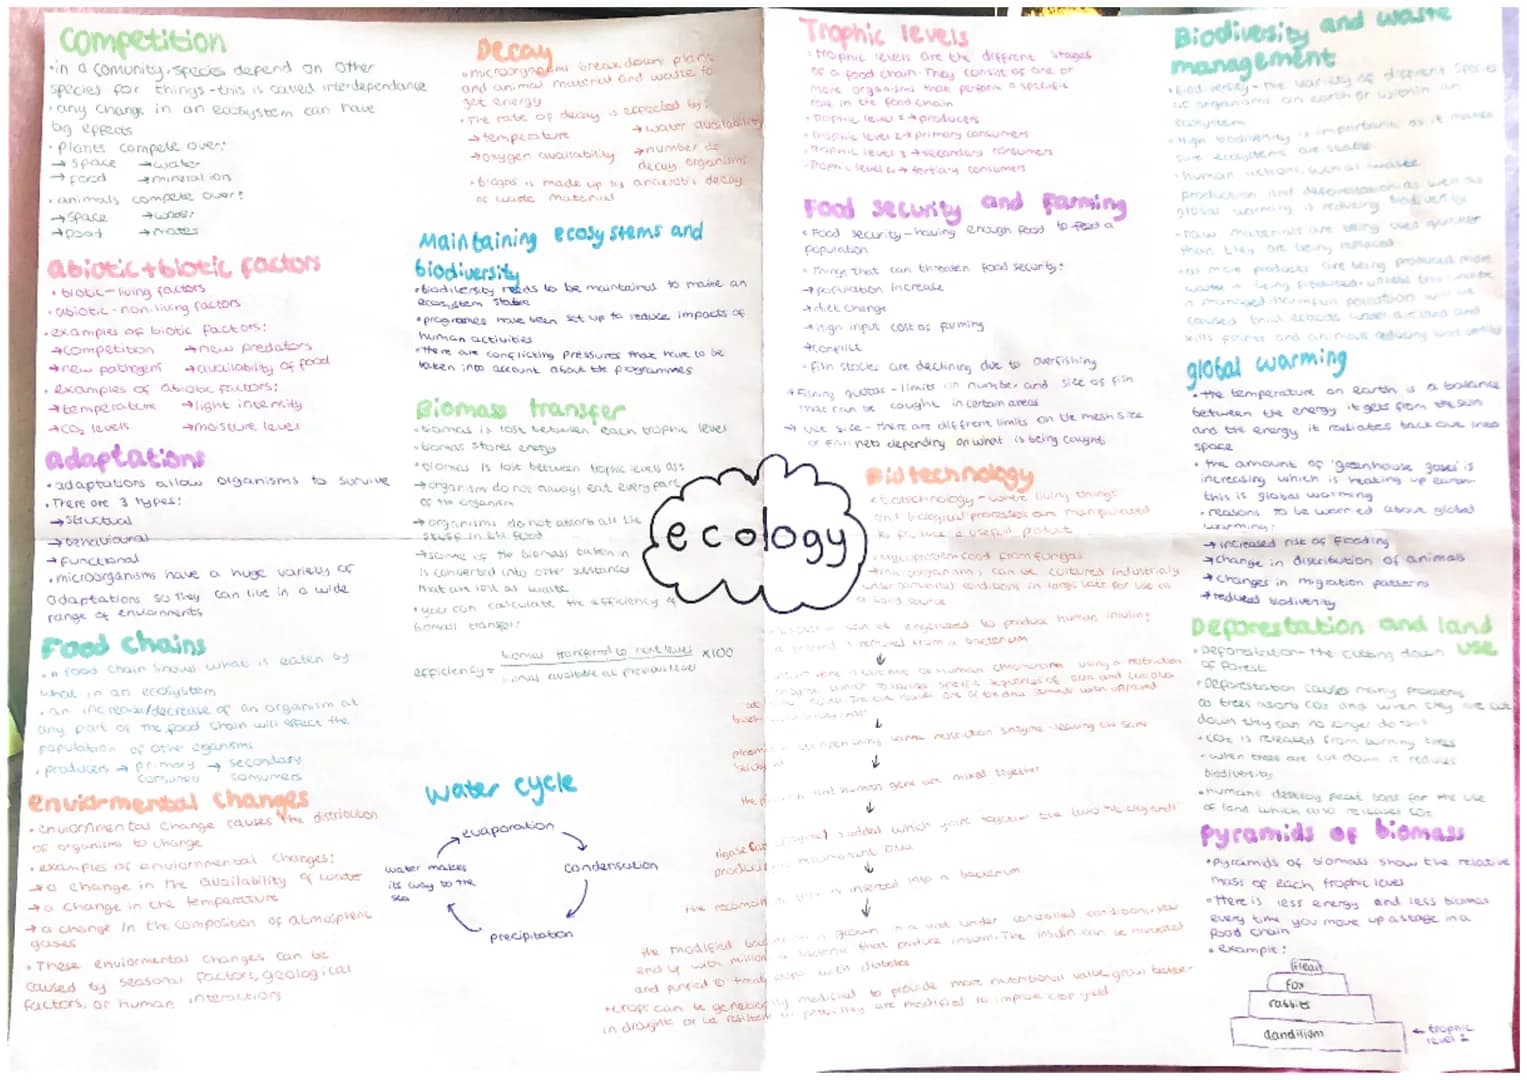 Competition
• in a comunity, species depend on other
species for things - this is called interdependance
• any change in an ecosystem can have
big effects
• Plants compete over:
→ space → water
→ food → mineral ion
• animals compete over:
→ space → water
→ food → mates
abiotic + biotic factors
• biotic - living factors
• abiotic - non-living factors
• examples of biotic factors:
→ competition → new predators
→ new pathogens → availability of food
• examples of abiotic factors:
→ temperature → light intensity
→ CO2 levels → moisture level
adaptations
• adaptations allow organisms to survive
• There are 3 types:
→ structual
→ behavioural
→ functional
• microorganisms have a huge variety of
adaptations so they can live in a wide
range of enviornments
Food chains
• a food chain shows what is eaten by
what in an ecosystem
• an increase/decrease of an organism at
any part of the food chain will effect the
population of other organisms
• producers → primary → secondary
consumer consumers
enviormental changes
• enviornmental change causes the distribution
of organisms to change
• examples of enviornmental changes:
→ a change in the availability of water
→ a change in the temperature
→ a change in the composition of atmospheric
gases
• These enviormental changes can be
caused by seasonal factors, geological
factors, or human interactions
Decay
• microorganisms break down plant
and animal material and waste to
get energy
• The rate of decay is effected by:
→ temperature → water availability
→ oxygen availability → number of
decay organisms
• biogas is made up by anaerobic decay
of waste material
Maintaining ecosystems and
biodiversity
• biodiversity needs to be maintained to make an
ecosystem stable
• programmes have been set up to reduce impacts of
human activities
• there are conflicting pressures that have to be
taken into account about the programmes
Biomass transfer
• biomass is lost between each trophic level
• biomass stores energy
• biomass is lost between trophic levels as:
→ organism do not always eat every part
of the organism
→ organisms do not absorb all the
stuff in the food
→ some of the biomass taken in
is converted into other substances
that are lost as waste
• you can calculate the efficiency of
biomass transfer:
efficiency = biomass transferred to next level x100
biomass available at previous level
Water cycle
evaporation
condensation
precipitation
water makes
its way to the
sea
ecology
Trophic levels
• trophic levels are the different stages
of a food chain. They consist of one or
more organisms that perform a specific
role in the food chain
• Trophic level 1 → producers
• Trophic level 2 → primary consumers
• Trophic level 3 → secondary consumers
• Trophic level 4 → tertiary consumers
Food security and farming
• Food security - having enough food to feed a
population
• Things that can threaten food security:
→ population increase
→ diet change
→ high input cost of farming
→ conflict
• fish stocks are declining due to overfishing
→ Fishing quotas - limits on number and size of fish
that can be caught in certain areas
→ size - there are different limits on the mesh size
of fish nets depending on what is being caught
Biotechnology
• biotechnology - where living things
and biological processes are manipulated
to produce a usefull product
• Mycoprotein - food from fungai
→ microorganisms can be cultured industrially
under controlled conditions in large vats for use as
a food source
can be engineered to produce human insulin:
is removed from a bacterium
using a restriction
the same
human gene are mixed together
is inserted into a bacterium
is grown in a vat under controlled conditions, you
end up with millions of bacteria that produce insulin. The insulin can be
and purified to treat people with diabetes
• crops can be genetically modified to provide more nutritional value, grow better
in drought or be resistent to pests. They are modified to improve crop yield
Biodiversity and waste
management
• Biodiversity - the variety of different species
of organisms on earth or within an
ecosystem
• High biodiversity is importantc as it makes
sure ecosystems are stable
• human actions such as waste
production and deforestation as well as
global warming is reducing biodiversity
• raw materials are being used quicker
than they are being replaced
• as more products are being produced more
waste is being produced. unless this waste
is managed harmful pollution will be
caused
kills plants and animals reducing biodiversity
global warming
• the temperature on earth is a balance
between the energy it gets from the sun
and the energy it radiates back out into
space
• the amount of 'greenhouse gases' is
increasing which is heating up earth
this is global warming
• reasons to be worried about global
warming:
→ increased risk of flooding
→ change in distribution of animals
→ changes in migration patterns
→ reduced biodiversity
Deforestation and land
use
• Deforestation - the cutting down
of forest
• Deforestation causes many problems
as trees absorb CO2 and when they are cut
down they can no longer do this
• CO2 is released from burning trees
• when trees are cut down it reduces
biodiversity
• humans destroy peat bogs for the use
of land which also releases CO2
Pyramids of biomass
• Pyramids of biomass show the relative
mass of each trophic level
• there is less energy and less biomass
every time you move up a stage in a
food chain
• example:
fleas
fox
rabbits
dandiliom
← trophic
level 1